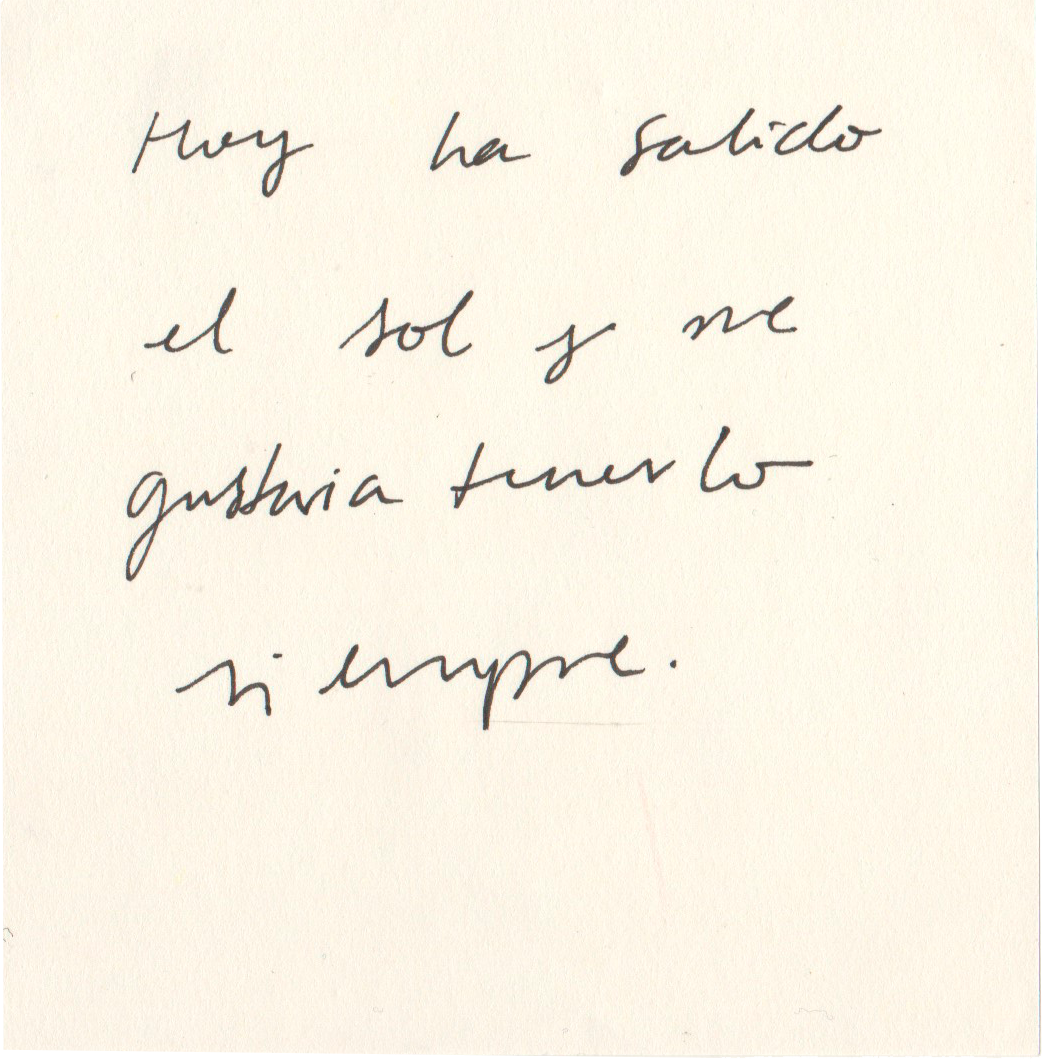 Hoy ha salido
el sol y me
gustaria tenerlo
siempre.